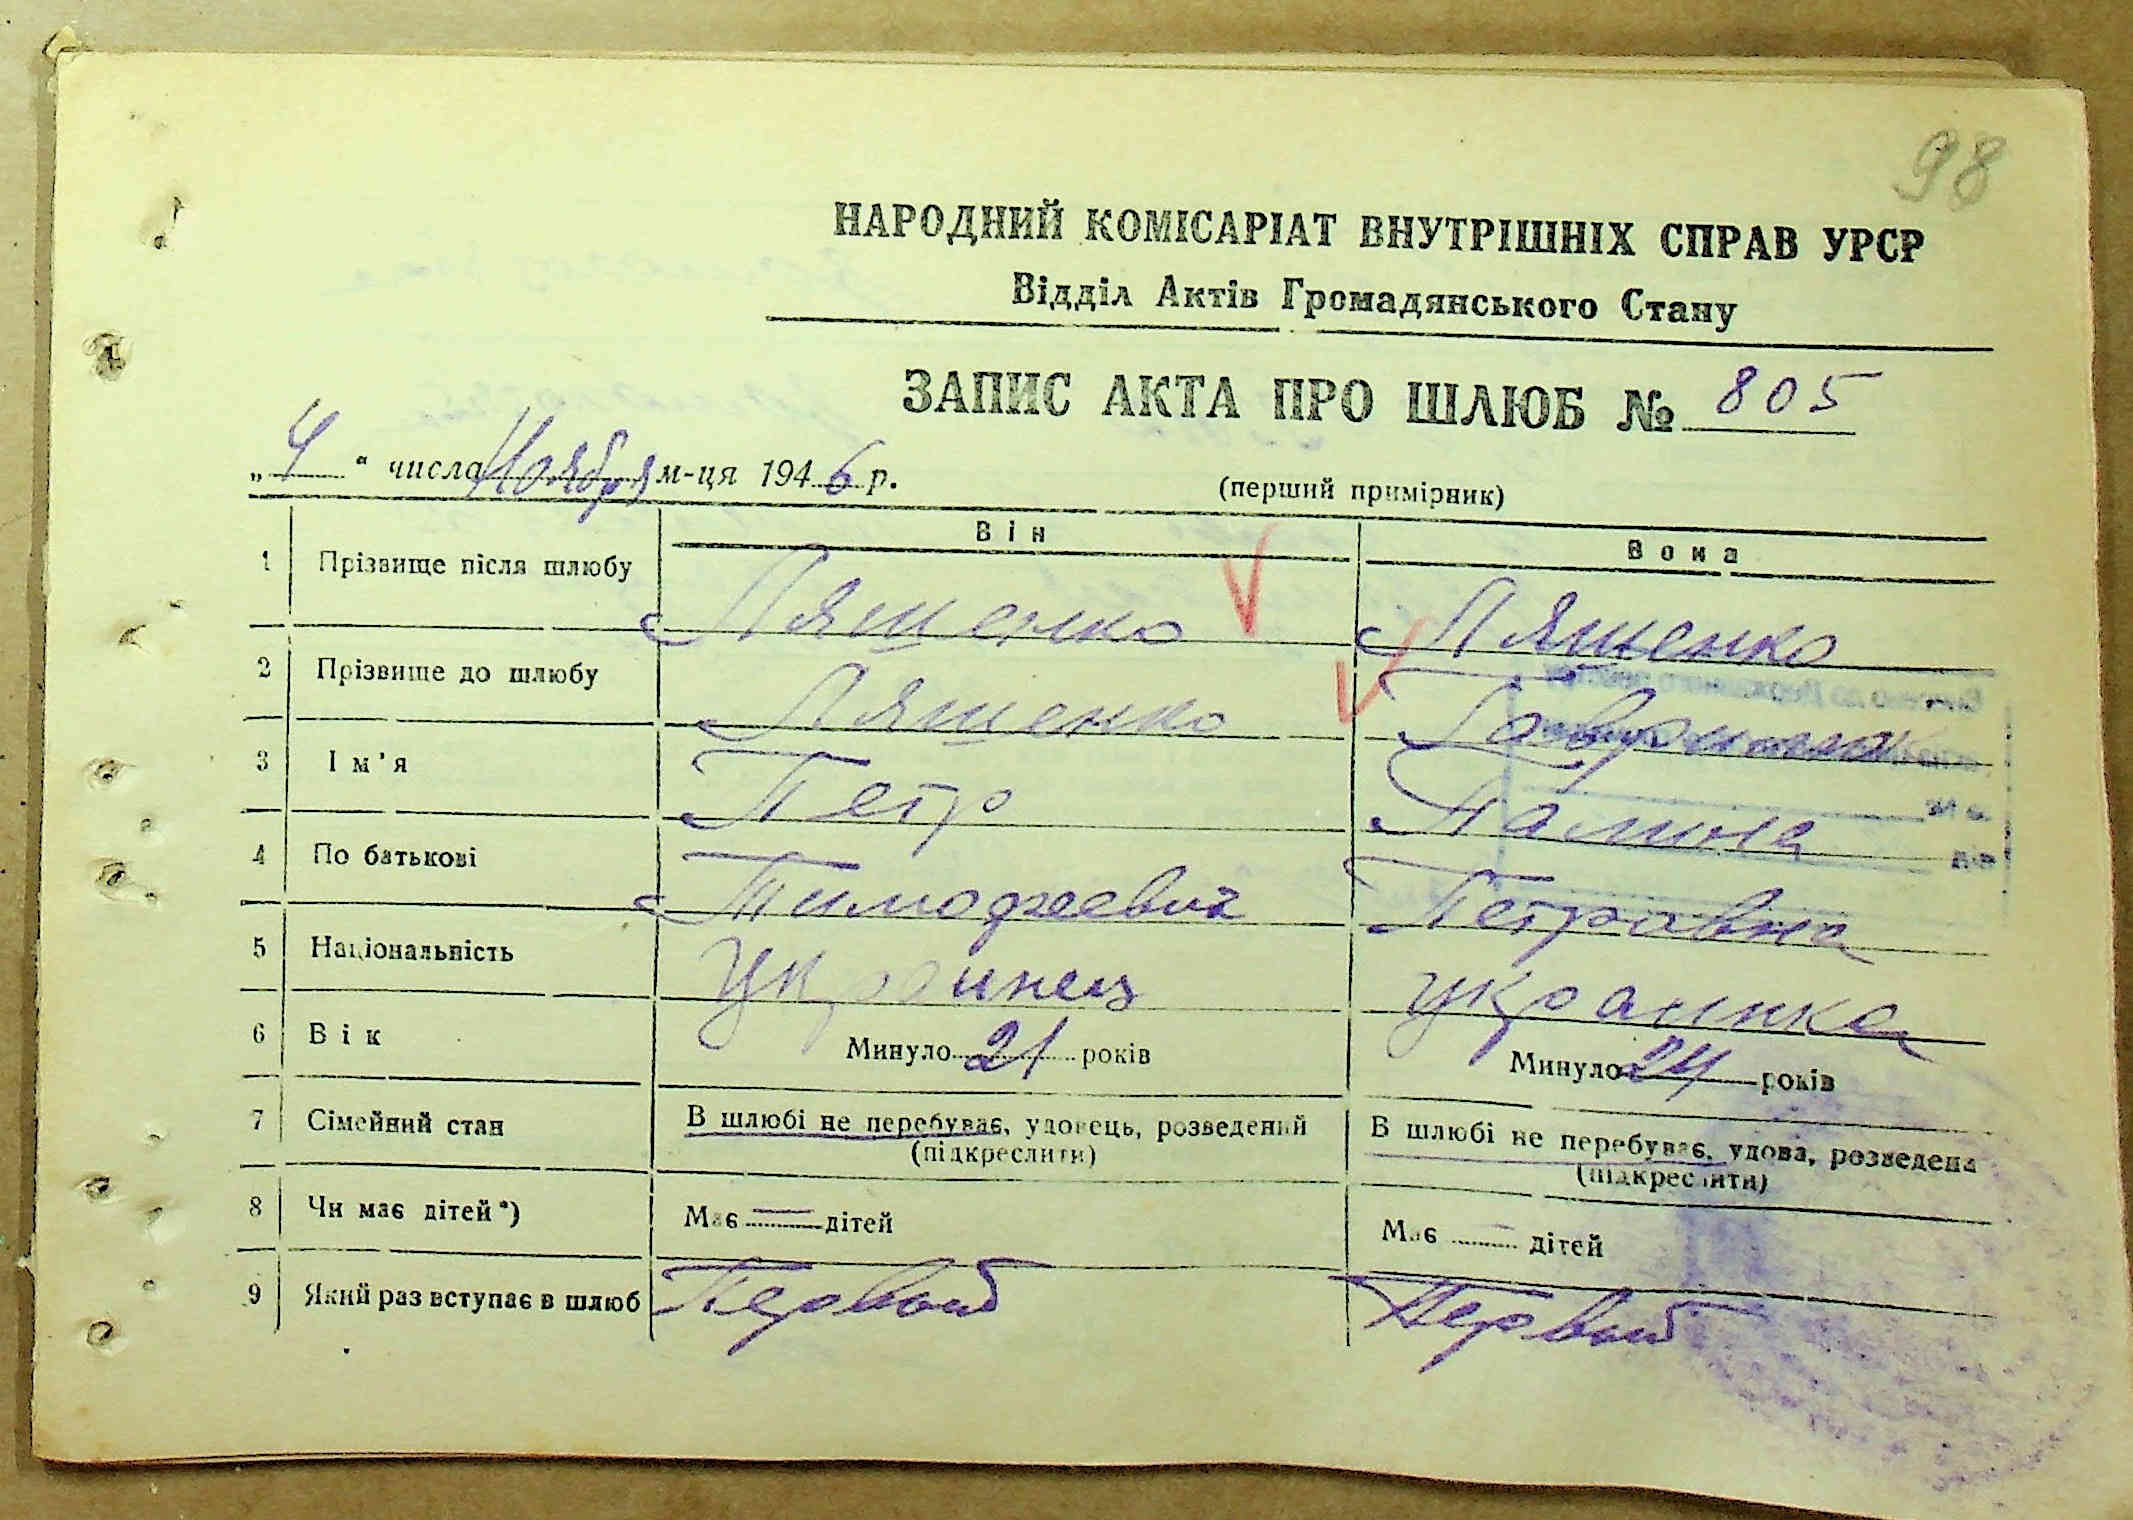 98
НАРОДНИЙ КОМІСАРІАТ ВНУТРІШНІХ СПРАВ УРСР
Відділ Актів Громадянського Стану
ЗАПИС АКТА ПРО ШЛЮБ № 805
„4“ числа Ноября м-ця 1946 р. (перший примірник)
Він Вона
1 Прізвище після шлюбу Ляшенко Ляшенко
2 Прізвище до шлюбу Ляшенко
3 Ім'я Петр Галина
4 По батькові Тимофеевич Петровна
5 Національність Украинец украинка
6 Вік Минуло 21 років Минуло 24 років
7 Сімейний стан В шлюбі не перебуває, удовець, розведений В шлюбі не перебуває, удова, розведена
(підкреслити) (підкреслити)
8 Чи має дітей*) Має — дітей Має — дітей
9 Який раз вступає в шлюб Первый Первый